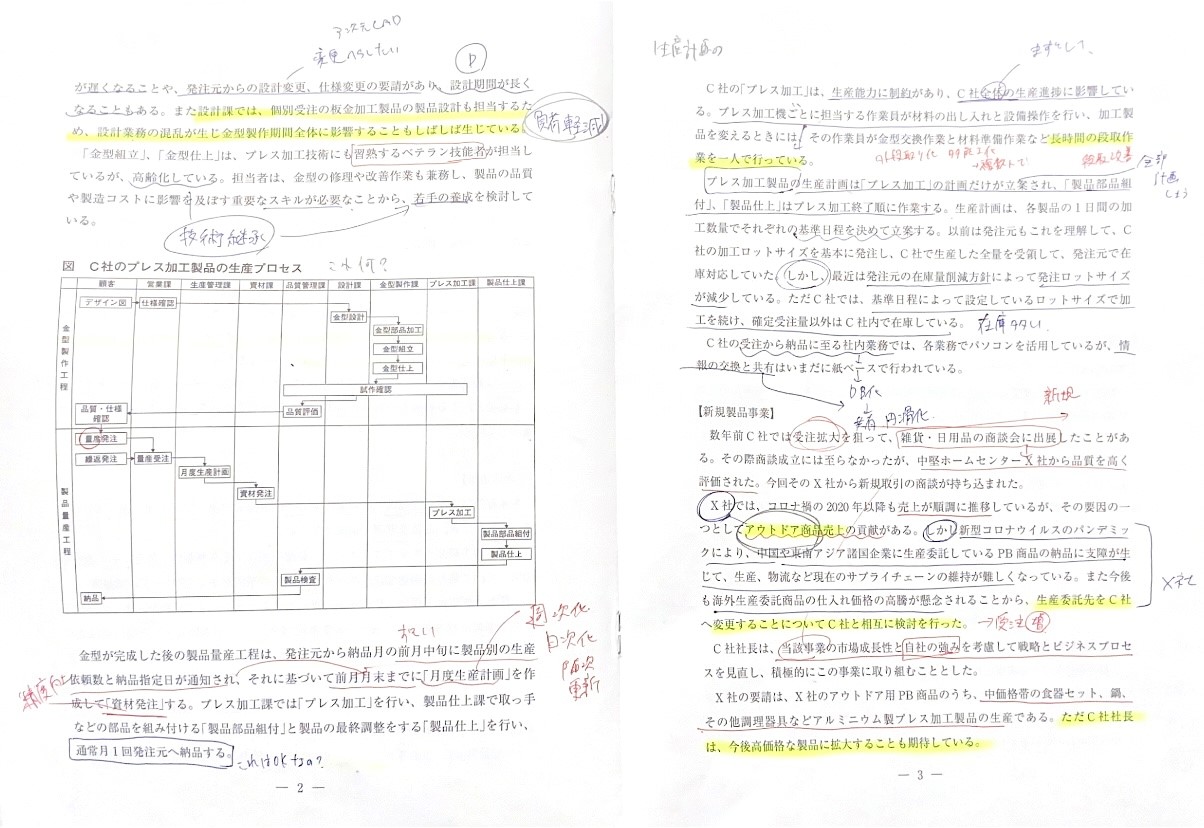 変更へらしたい
D
が遅くなることや、発注元からの設計変更、仕様変更の要請があり、設計期間が長く
なることもある。また設計課では、個別受注の板金加工製品の製品設計も担当するた
め、設計業務の混乱が生じ金型製作期間全体に影響することもしばしば生じている。
負荷軽減
「金型組立」、「金型仕上」は、プレス加工技術にも習熟するベテラン技能者が担当し
ているが、高齢化している。担当者は、金型の修理や改善作業も兼務し、製品の品質
や製造コストに影響を及ぼす重要なスキルが必要なことから、若手の養成を検討して
いる。
技術継承
図 C社のプレス加工製品の生産プロセス
これ何?
顧客 営業課 生産管理課 資材課 品質管理課 設計課 金型製作課 プレス加工課 製品仕上課
金型製作工程
デザイン図 仕様確認
金型設計
金型部品加工
金型組立
金型仕上
試作確認
品質評価
品質・仕様
確認
製品量産工程
量産発注
繰返発注 量産受注
月度生産計画
資材発注
プレス加工
製品部品組付
製品仕上
製品検査
納品
週次化
日次化
更新
金型が完成した後の製品量産工程は、発注元から納品月の前月中旬に製品別の生産
依頼数と納品指定日が通知され、それに基づいて前月月末までに「月度生産計画」を作
成して「資材発注」する。プレス加工課では「プレス加工」を行い、製品仕上課で取っ手
などの部品を組み付ける「製品部品組付」と製品の最終調整をする「製品仕上」を行い、
通常月1回発注元へ納品する。
精度向上
これはOKなの?
― 2 ―
生産計画の
まずとして、
C社の「プレス加工」は、生産能力に制約があり、C社全体の生産進捗に影響してい
る。プレス加工機ごとに担当する作業員が材料の出し入れと設備操作を行い、加工製
品を変えるときには、その作業員が金型交換作業と材料準備作業など長時間の段取作
業を一人で行っている。
外段取り化 多能工化
段取改善
プレス加工製品の生産計画は「プレス加工」の計画だけが立案され、「製品部品組
付」、「製品仕上」はプレス加工終了順に作業する。生産計画は、各製品の1日間の加
工数量でそれぞれの基準日程を決めて立案する。以前は発注元もこれを理解して、C
社の加工ロットサイズを基本に発注し、C社で生産した全量を受領して、発注元で在
庫対応していた。しかし、最近は発注元の在庫量削減方針によって発注ロットサイズ
が減少している。ただC社では、基準日程によって設定しているロットサイズで加
工を続け、確定受注量以外はC社内で在庫している。
全部
計画
しよう
在庫多い
C社の受注から納品に至る社内業務では、各業務でパソコンを活用しているが、情
報の交換と共有はいまだに紙ベースで行われている。
DB化
共有 円滑化
【新規製品事業】
新規
数年前C社では受注拡大を狙って、雑貨・日用品の商談会に出展したことがあ
る。その際商談成立には至らなかったが、中堅ホームセンターX社から品質を高く
評価された。今回そのX社から新規取引の商談が持ち込まれた。
X社では、コロナ禍の2020年以降も売上が順調に推移しているが、その要因の一
つとしてアウトドア商品売上の貢献がある。しかし新型コロナウイルスのパンデミッ
クにより、中国や東南アジア諸国企業に生産委託しているPB商品の納品に支障が生
じて、生産、物流など現在のサプライチェーンの維持が難しくなっている。また今後
も海外生産委託商品の仕入れ価格の高騰が懸念されることから、生産委託先をC社
へ変更することについてC社と相互に検討を行った。
X社
→受注増
C社社長は、当該事業の市場成長性と自社の強みを考慮して戦略とビジネスプロセ
スを見直し、積極的にこの事業に取り組むこととした。
X社の要請は、X社のアウトドア用PB商品のうち、中価格帯の食器セット、鍋、
その他調理器具などアルミニウム製プレス加工製品の生産である。ただC社社長
は、今後高価格な製品に拡大することも期待している。
― 3 ―